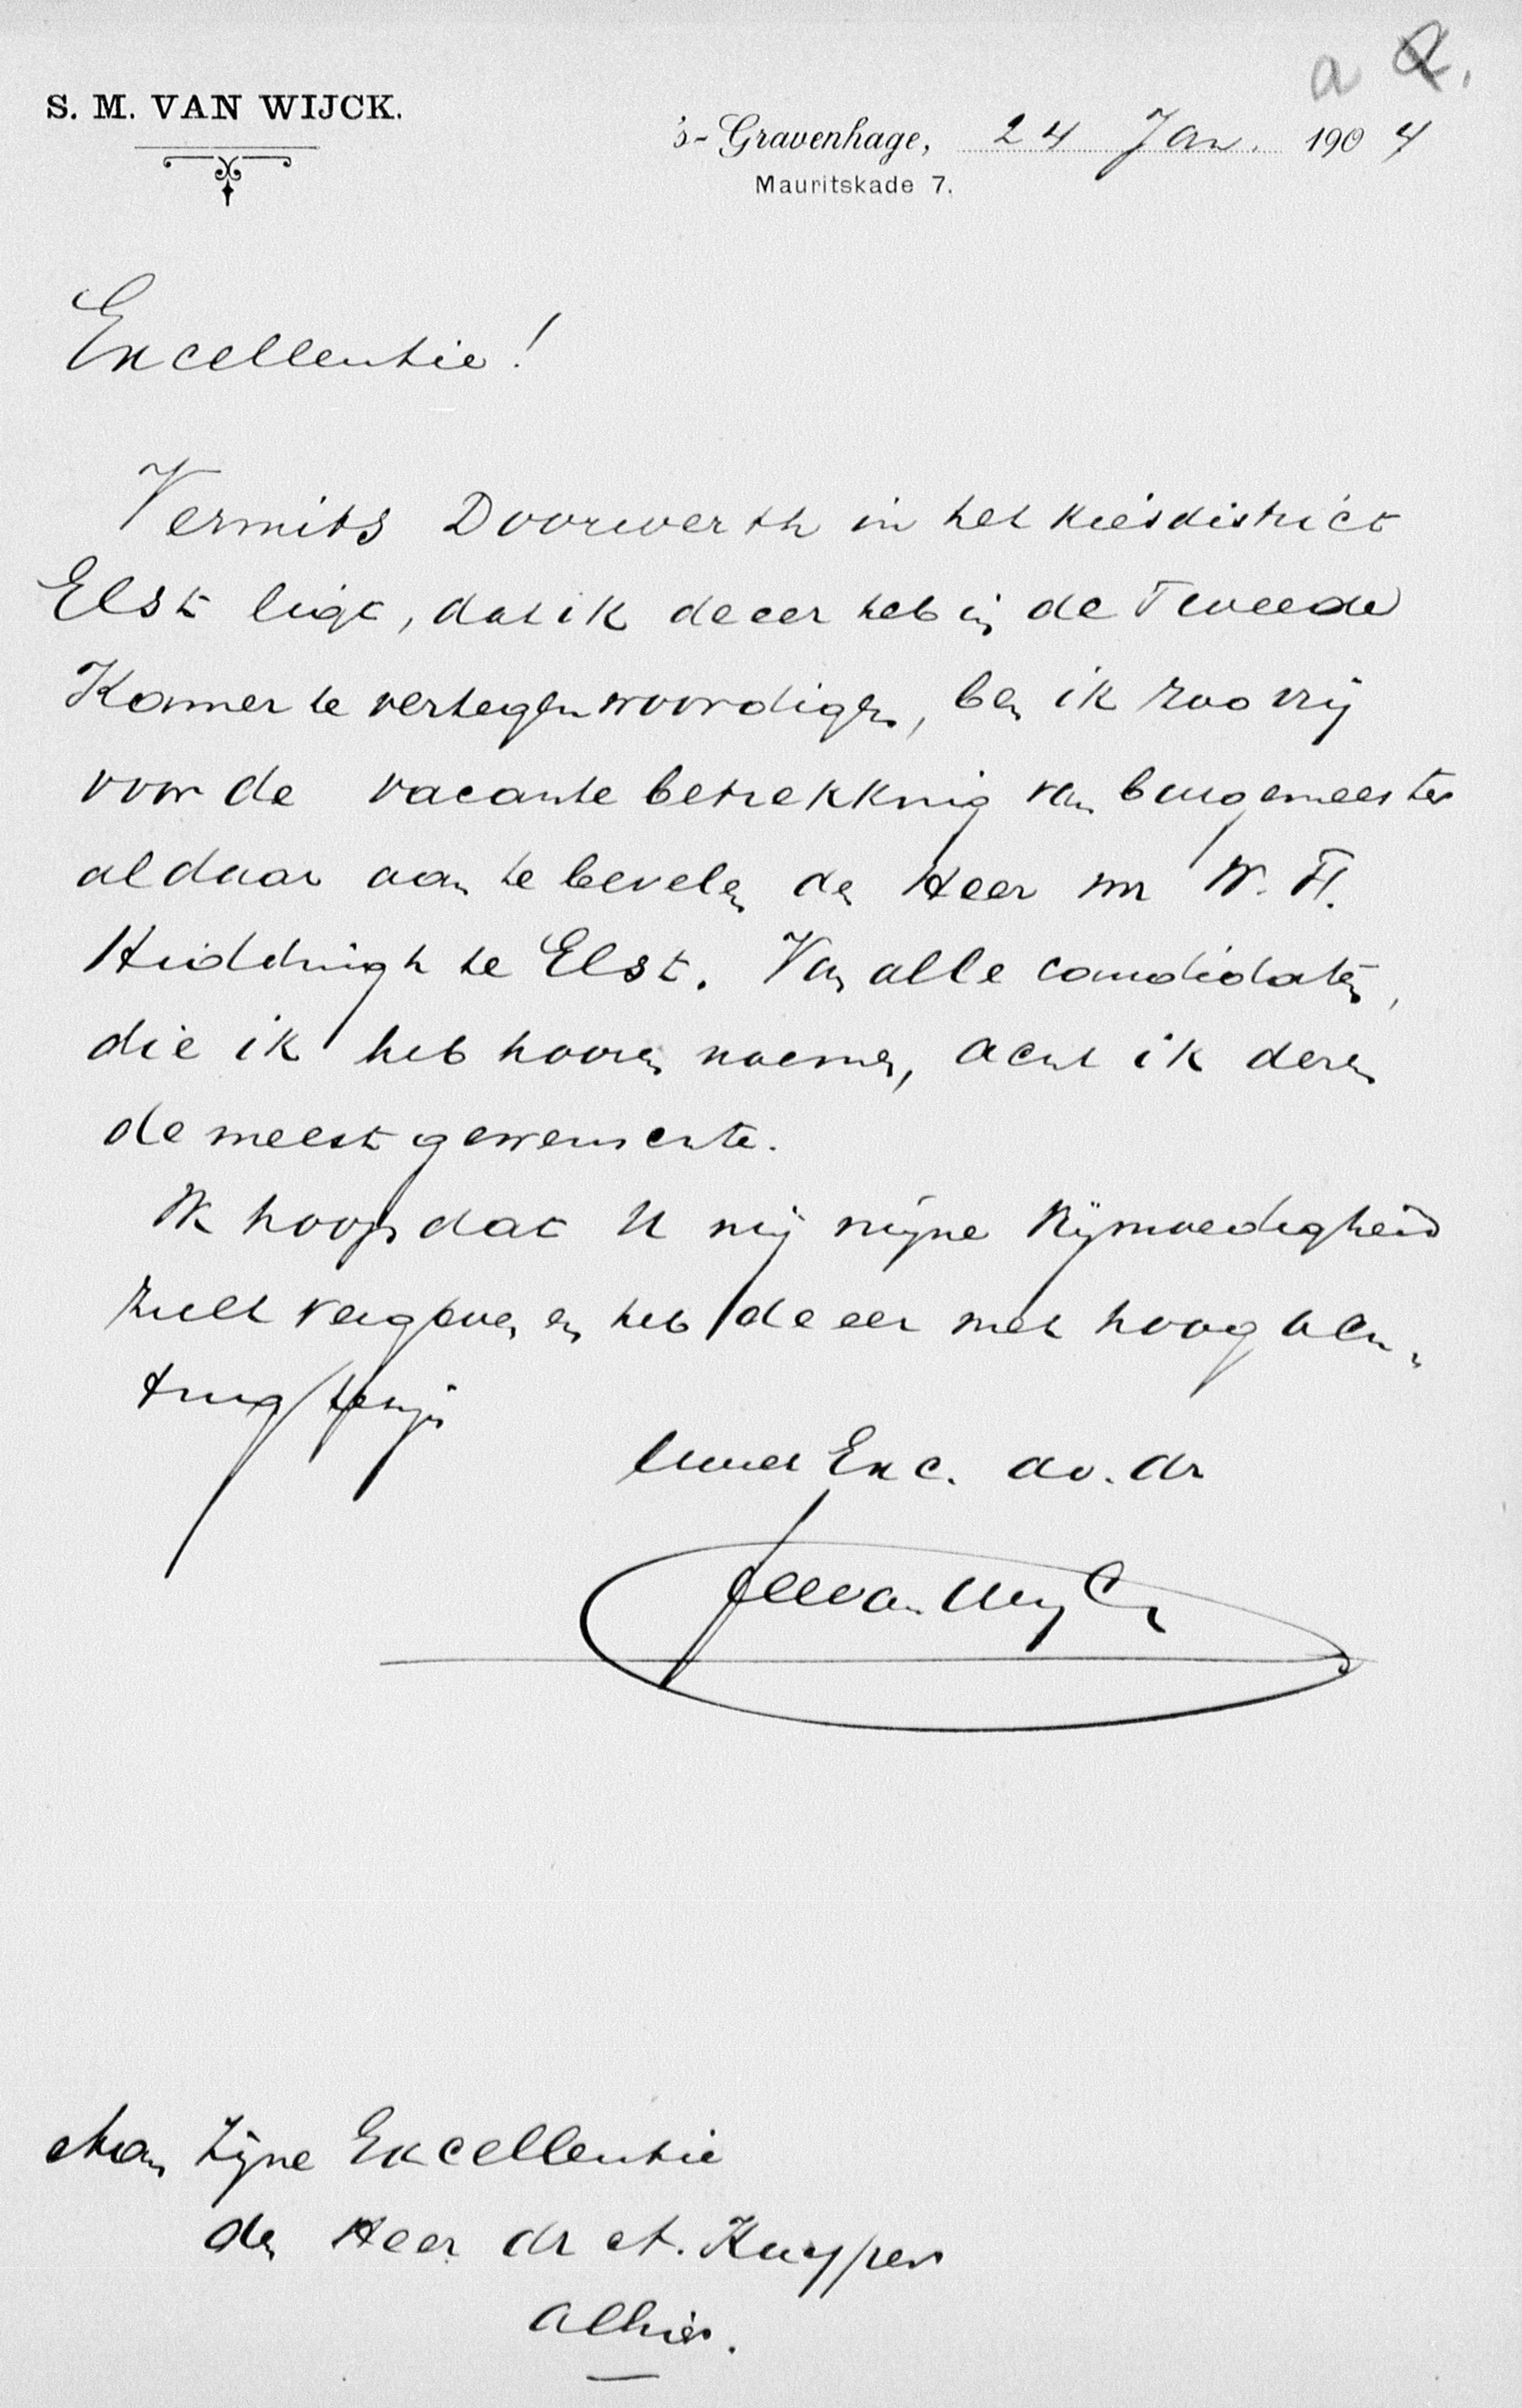 a Q.
S. M. VAN WIJCK.
's-Gravenhage, 24 Jan. 1904
Mauritskade 7.
Excellentie!
Vermits Doorwerth in het kiesdistrict
Elst ligt, dat ik de eer heb in de Tweede
Kamer te vertegenwoordigen, ben ik zoo vrij
voor de vacante betrekking van burgemeester
aldaar aan te bevelen den Heer mr W. H.
Hiddingh te Elst. Van alle candidaten,
die ik heb hooren noemen, acht ik dezen
de meest gewenschte.
Ik hoop dat U mij mijne vrijmoedigheid
zult vergeven en heb de eer met hoogach-
ting te zijn
Uwer Exc. dv. dr
SMvan Wijck
Aan Zijne Excellentie
den Heer dr A. Kuyper
Alhier.